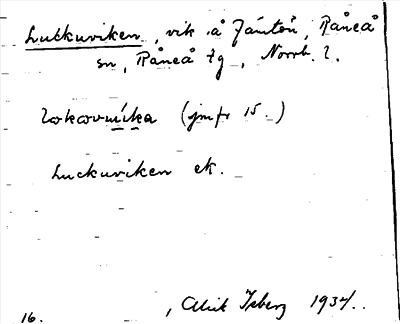 Luckuviken, vik å Jämtön, Råneå
sn, Råneå tg, Norrb. l.
(jmfr 15.)
Luckuviken ek.
16. , Alrik Isberg 1934.